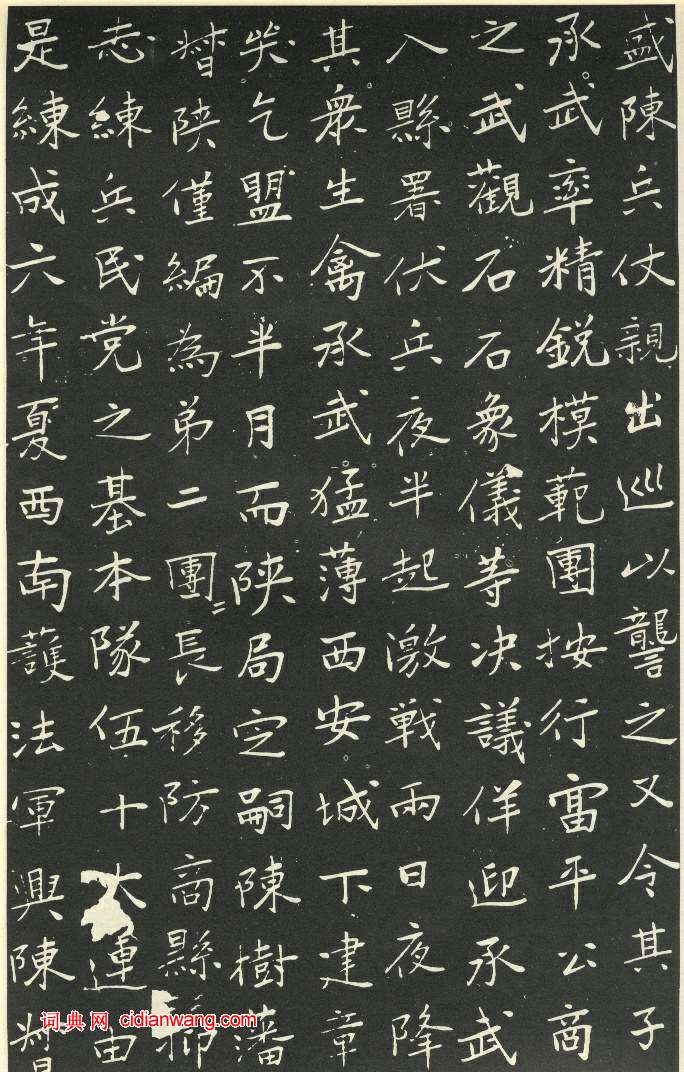 盛陳兵仗親出巡以讋之又令其子
承武率精銳模範團按行富平公商
之武觀石石象儀等決議佯迎承武
入縣署伏兵夜半起激戰兩日夜降
其衆生禽承武猛薄西安城下建章
哭乞盟不半月而陝局定嗣陳樹藩
督陝僅編為弟二團二長移防商縣
志練兵民党之基本隊伍十大連由
是練成六年夏西南護法軍興陳督
词典网 cidianwang.com